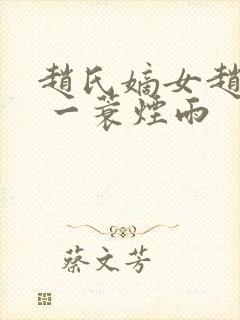 趙氏嫡女趙
一蓑煙雨
蔡文芳